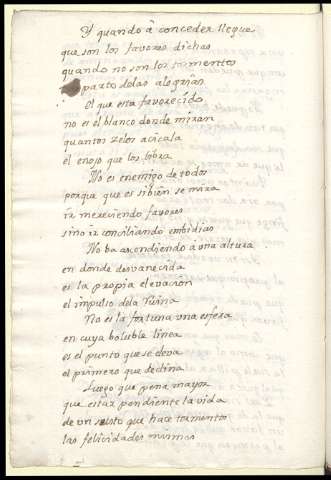 Y quando â conceder llegue
que son los favores dichas
quando no son los tormentos
parto delas alegrias
El que esta favorecido
no es el blanco donde miran
quantos zelos acicala
el enojo que los
No es enemigo de todos
porque que es sibien se mira
ir mereciendo favores
sino ir conciliando embidias
No ba ascendiendo â una altura
en donde desvanecida
es la propia elevacion
el impulso dela Ruina
No es la fortuna una esfera
en cuya boluble linea
es el punto que se eleva
el primero que declina
Luego que pena mayor
que estar pendiente la vida
de un susto que hace tormentos
las felicidades mismas